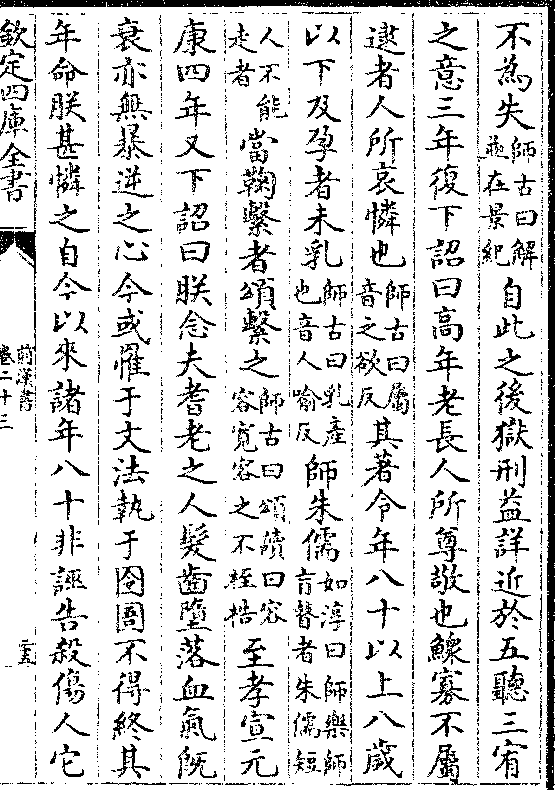 不為失師古曰解並在景紀自此之後獄刑益詳近於五聽三宥
之意三年復下詔曰高年老長人所尊敬也鰥寡不屬
逮者人所哀憐也師古曰屬音之欲反其著令年八十以上八歲
以下及孕者未乳師古曰乳產也音人喻反師朱儒如淳曰師樂師盲瞽者朱儒短
人不能走者當鞠繫者頌繫之師古曰頌讀曰容容寬容之不桎梏至孝宣元
康四年又下詔曰朕念夫耆老之人髮齒墮落血氣既
衰亦無暴逆之心今或罹于文法執于囹圄不得終其
年命朕甚憐之自今以來諸年八十非誣告殺傷人它
欽定四庫全書
前漢書
卷二十三